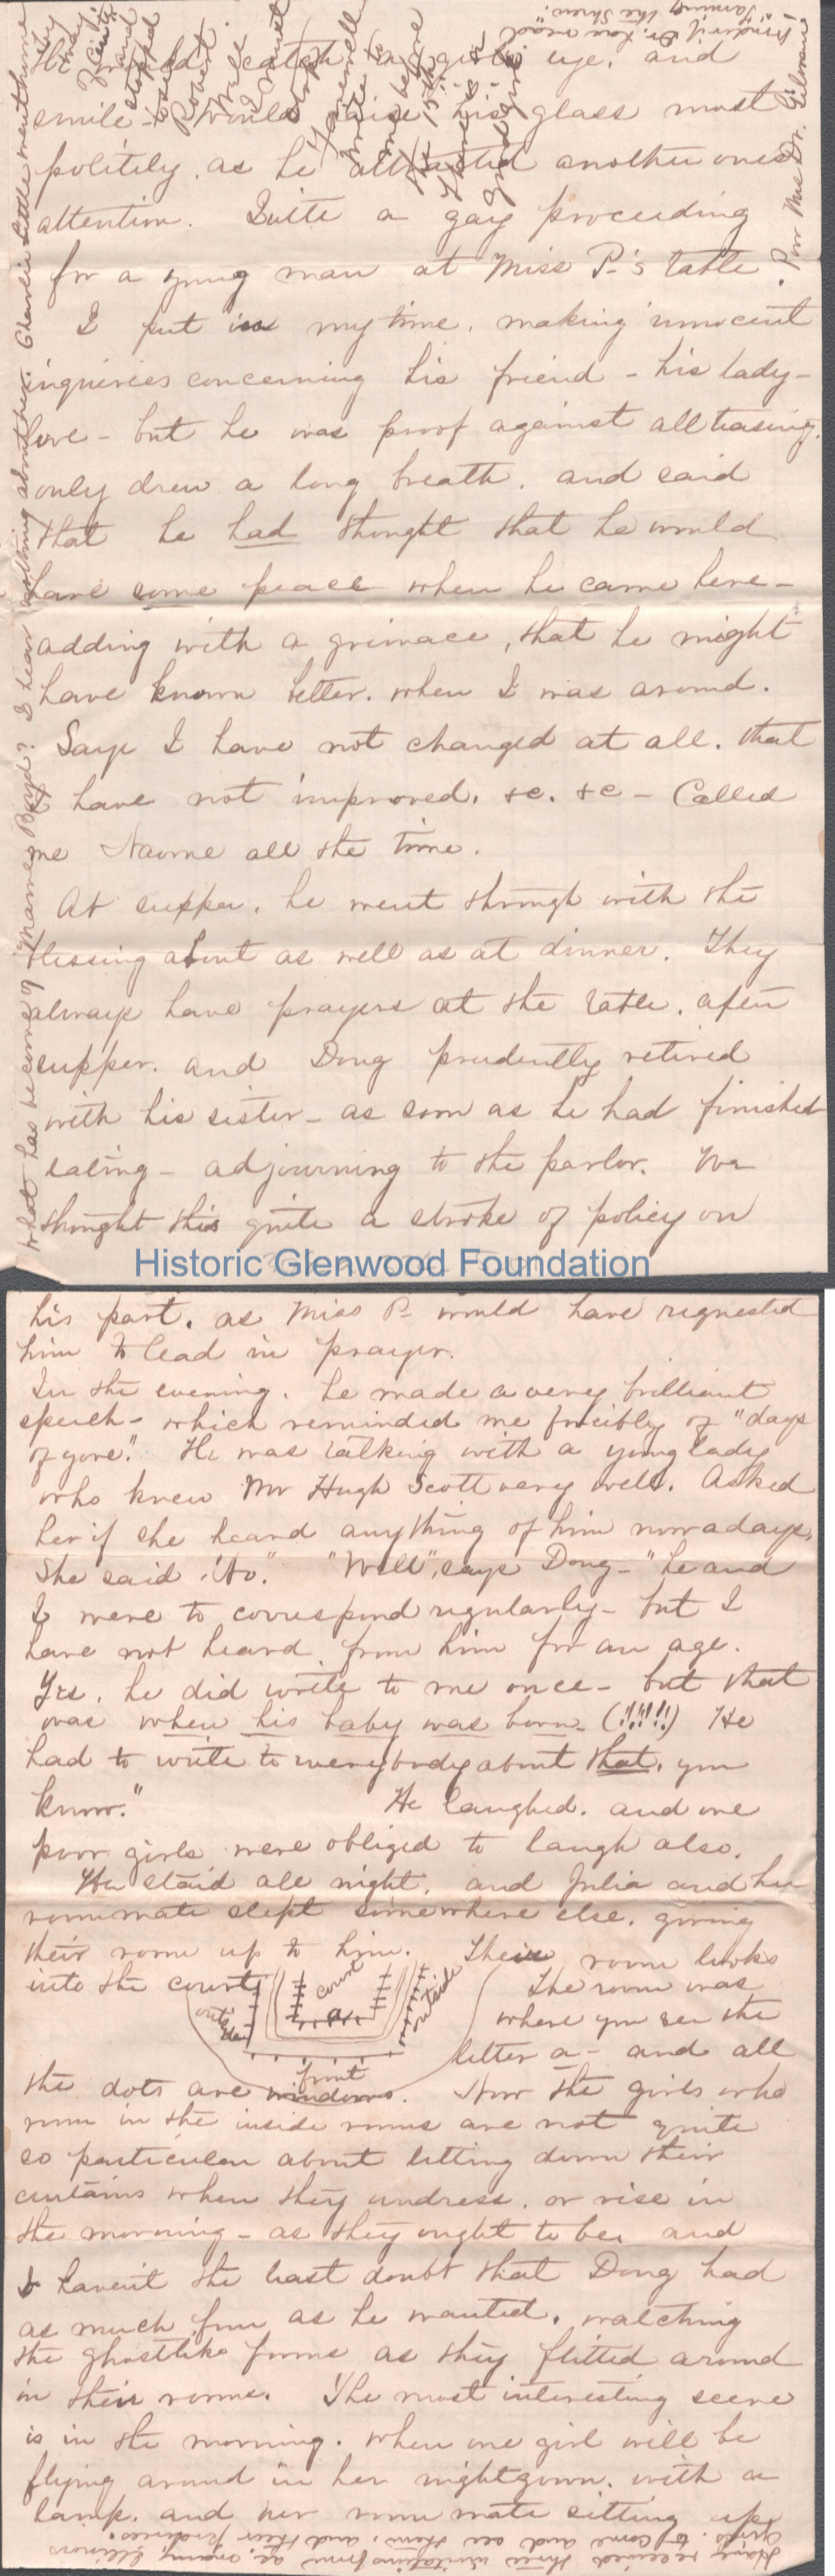 He would catch a girl's eye, and
smile - would raise his glass most
politely, as he attracted another ones
attention. Quite a gay proceeding
for a young man at Miss P-'s table.
I put in my time, making innocent
inquiries concerning his friend - his lady-
love - but he was proof against all teasing,
only drew a long breath, and said
that he had thought that he would
have some peace when he came here -
adding with a grimace, that he might
have known better, when I was around.
Says I have not changed at all, that
I have not improved, &c. &c - Called
me Naomie all the time.
At supper, he went through with the
blessing about as well as at dinner. They
always have prayers at the table, after
supper, and Doug prudently retired
with his sister - as soon as he had finished
eating - adjourning to the parlor. We
thought this quite a stroke of policy on
Historic Glenwood Foundation
his part, as Miss P- would have requested
him to lead in prayer.
In the evening, he made a very brilliant
speech - which reminded me forcibly of "days
of yore." He was talking with a young lady
who knew Mr Hugh Scott very well. Asked
her if she heard anything of him now a days,
She said "No." "Well", says Doug - "he and
I were to correspond regularly - but I
have not heard from him for an age.
Yes, he did write to me once - but that
was when his baby was born - (!!!!!) He
had to write to everybody about that, you
know." He laughed, and we
poor girls were obliged to laugh also.
He staid all night, and Julia and her
roommate slept somewhere else, giving
their room up to him. Their room looks
into the court
court
outside
outside
a
front
The room was
where you see the
letter a - and all
the dots are windows. Now the girls who
room in the inside rooms are not quite
so particular about letting down their
curtains when they undress, or rise in
the morning - as they ought to be, and
I haven't the least doubt that Doug had
as much fun as he wanted, watching
the ghostlike forms as they flitted around
in their rooms. The most interesting scene
is in the morning, when one girl will be
flying around in her nightgown, with a
lamp, and her room mate sitting up
Have received three invitations from
girls, to come and see them, and their
What has become of Mame Boyd? I hear nothing about her. Charlie Little went home
Poor Mrs Dr. Gilman
"Taming the Shrew."